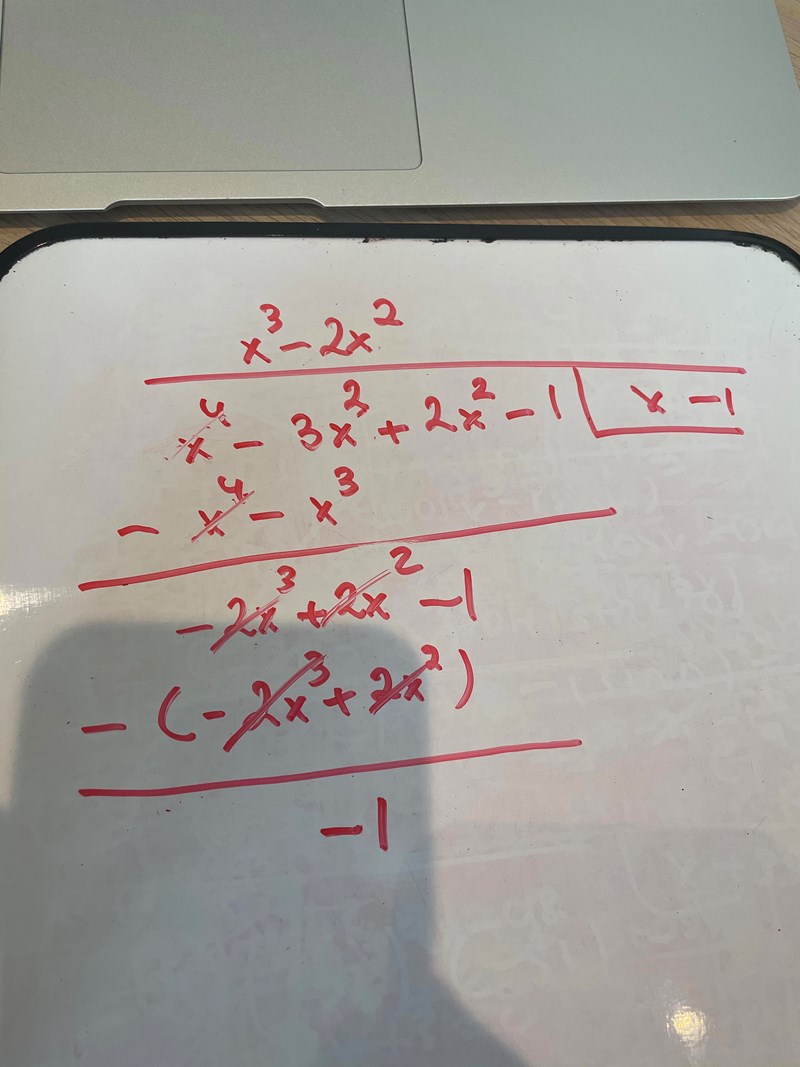 x³ - 2x²
x⁴ - 3x³ + 2x² - 1 x - 1
- x⁴ - x³
- 2x³ + 2x² - 1
- (- 2x³ + 2x²)
- 1